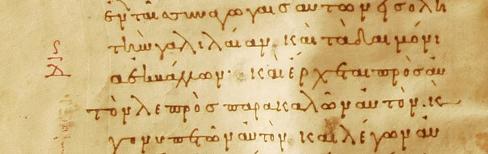 ἐν ταῖς συναγωγαῖς αὐτῶν εἰς ὅλην
τὴν γαλιλαίαν, καὶ τὰ δαιμόνι
α ἐκβάλλων· καὶ ἔρχεται πρὸς αὐ
τὸν λεπρὸς παρακαλῶν αὐτὸν, κ
γονυπετῶν αὐτὸν, καὶ λέγων αὐ